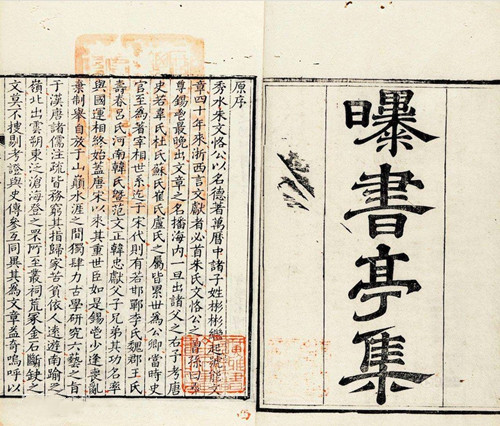 曝書亭集
原序
秀水朱文恪公以名德著萬曆中諸子姓彬彬繼起號能文
章四十年來浙西言文獻者必首朱氏文恪公之曾孫曰彝
尊錫鬯最晚出文章之名播海内一旦出諸父之右予考唐
史若韋氏杜氏蘇氏崔氏盧氏之屬皆累世為公卿當時史
官至為著宰相世系迄于宋代則有若邯鄲李氏魏郡王氏
壽春呂氏河南韓氏暨范文正韓忠獻父子兄弟其功名率
與國運相終始蓋唐宋以來其重世臣如是錫鬯少逢喪亂
棄制舉自放于山巔水涯之間獨肆力古學研究六藝之旨
于漢唐諸儒注疏皆務窮其指歸家苦貧依人遠遊南踰五
嶺北出雲朔東泛滄海登之罘所至叢祠荒冢金石斷缺之
文莫不搜剔考證與史傳參互同異其為文章益奇嗚呼以